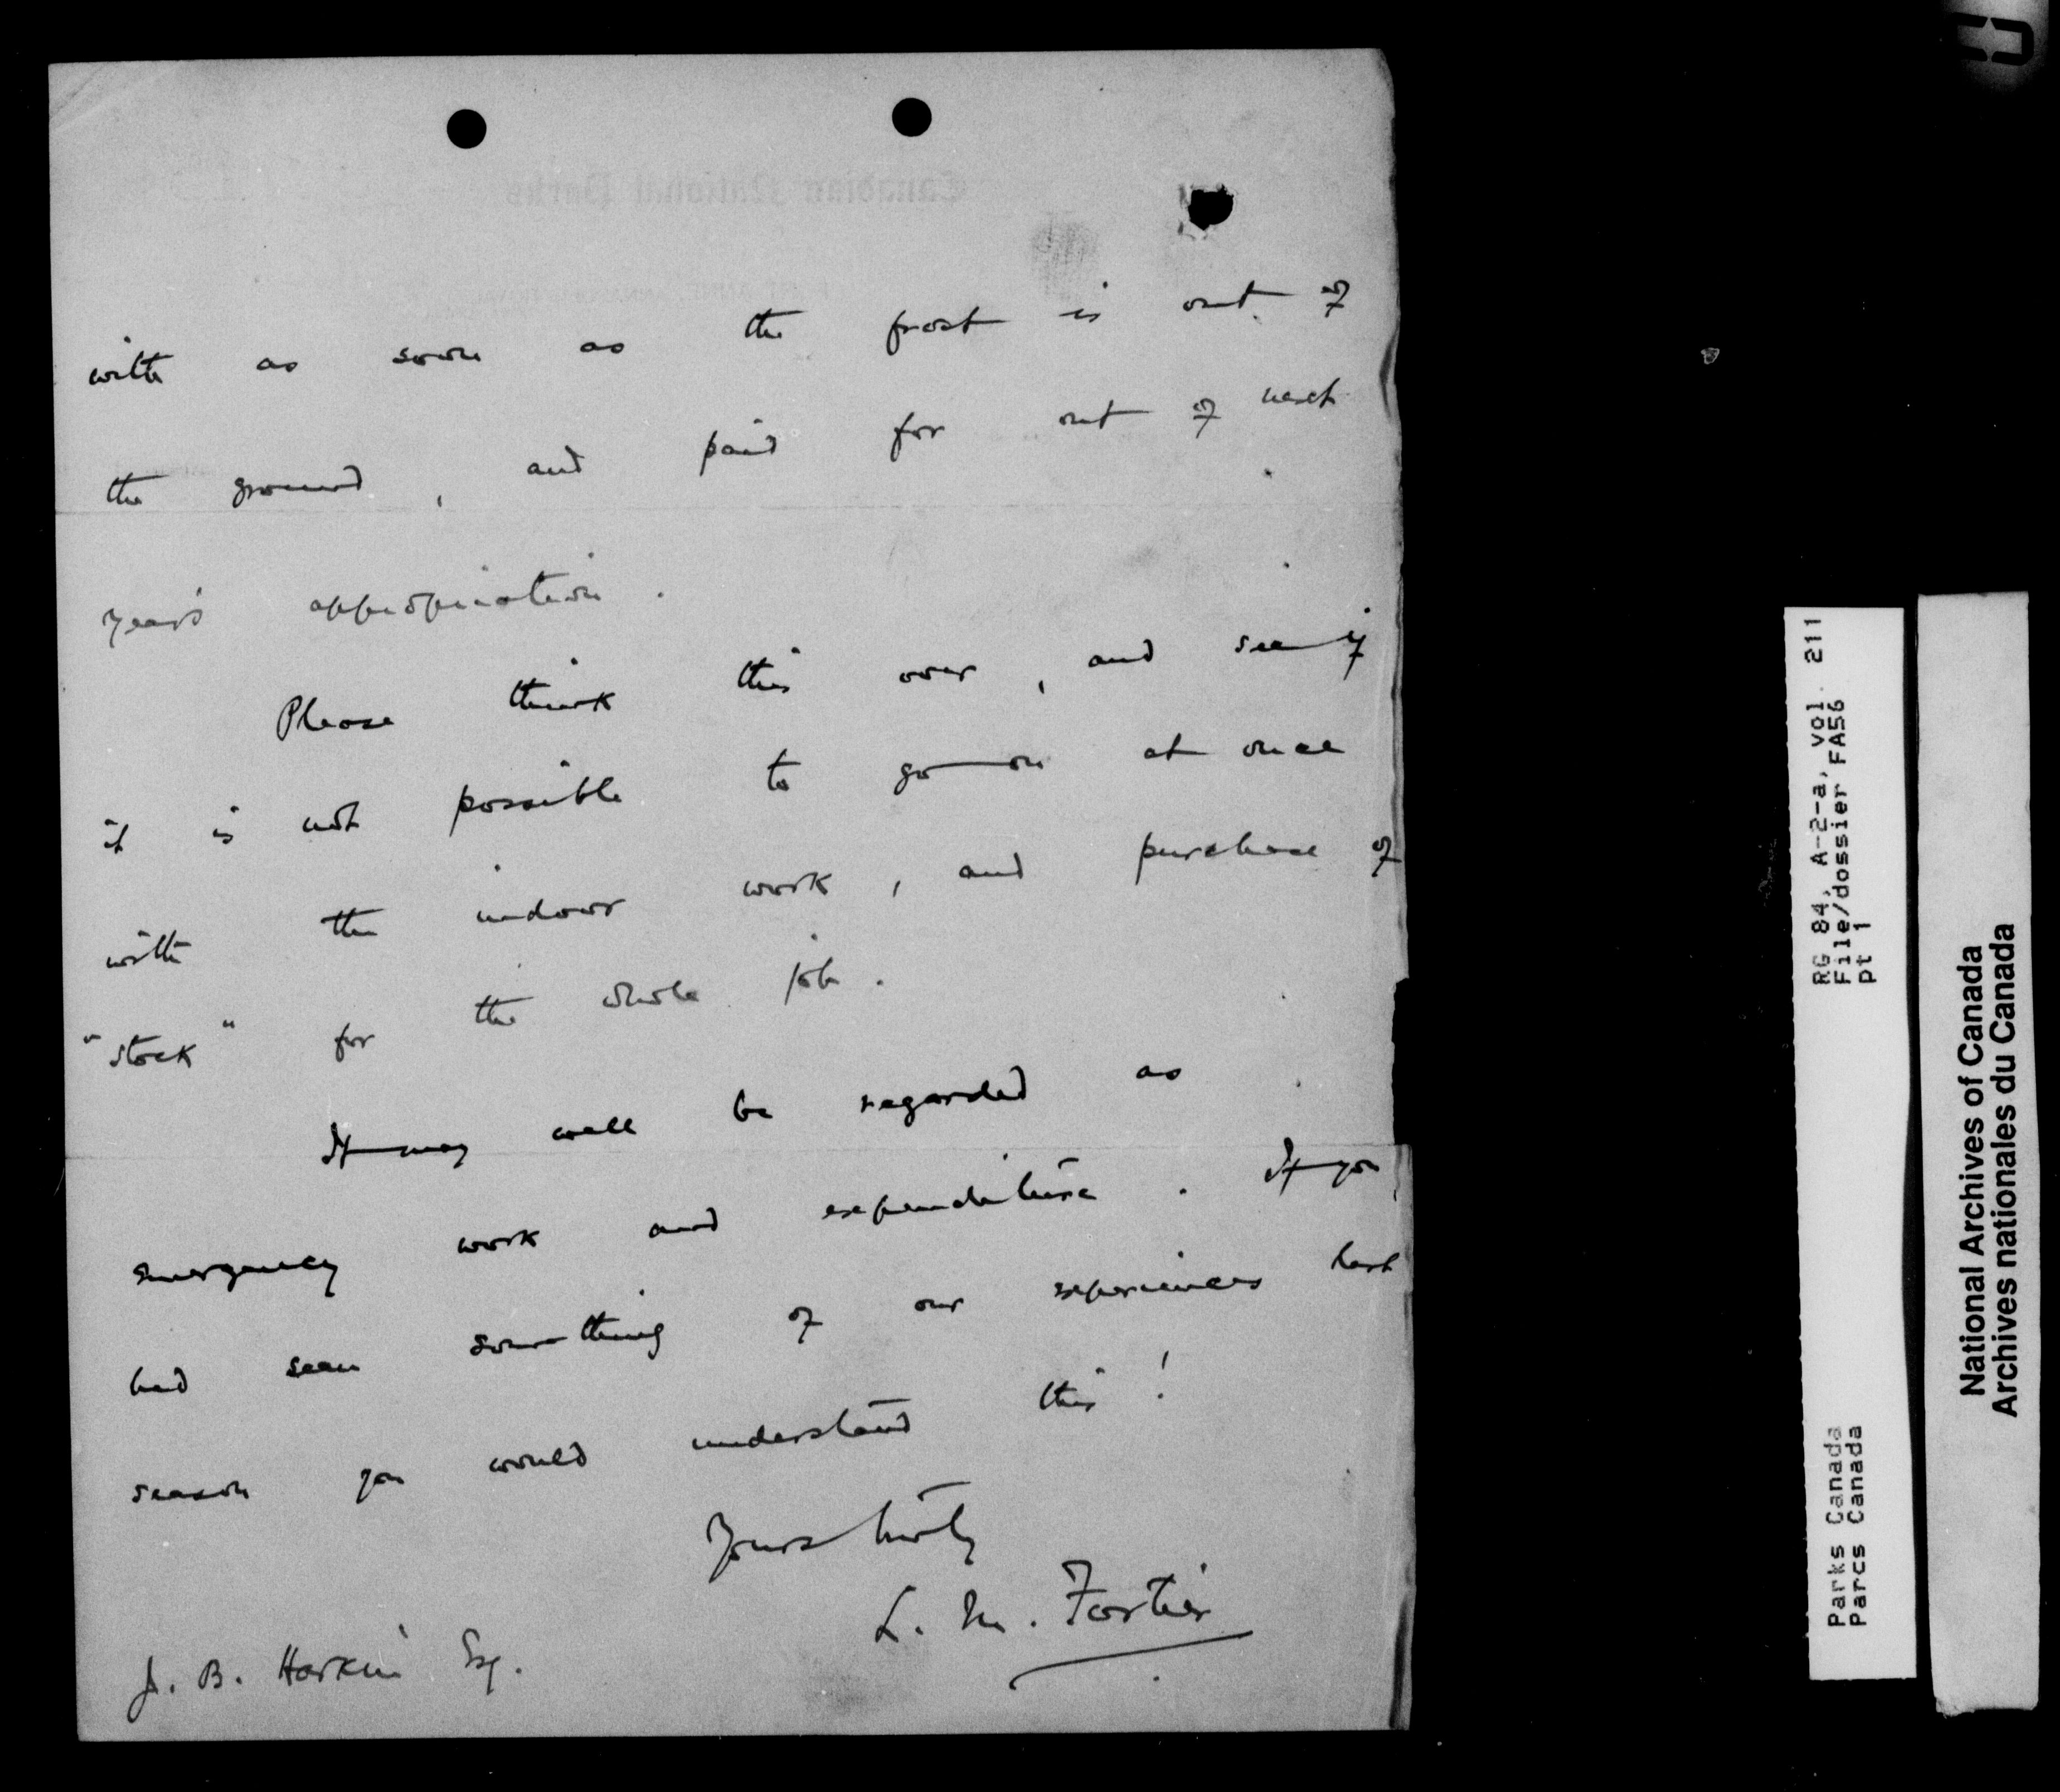 with as soon as the frost is out of
the ground, and paid for out of next
year's appropriation.
Please think this over, and see if
it is not possible to go on at once
with the indoor work, and purchase of
"stock" for the whole job.
It may well be regarded as
emergency work and expenditure. If you
had seen something of our experiences last
season you would understand this!
Yours truly
L. M. Fortier
J. B. Harkin Esq.
Canadian National Parks
RG 84, A-2-a, vol. 211
File/dossier FA56
pt 1
Parks Canada
Parcs Canada
National Archives of Canada
Archives nationales du Canada